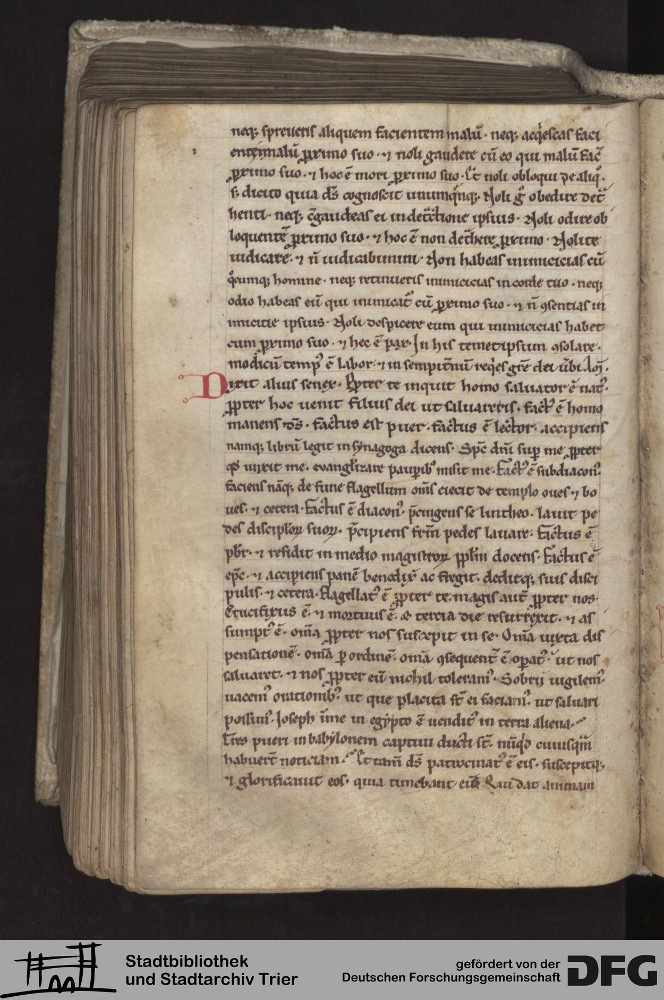 neq; spreueris aliquem facientem malū. neq; acq̇escas faci
entem malū ꝓximo suo. ⁊ noli gaudere cū eo qui malū fac̄
ꝓximo suo. ⁊ hoc ē mori ꝓximo suo. Et noli obloqui de aliq̊.
s; dicito quia ds̄ cognoscit unumq̄nq;. Noli g̊ obedire det̄
henti. neq; cͦgaudeas ei in det̄ctione ipsius. Noli odire ob
loquentē ꝓximo suo. ⁊ hoc ē non det̄here ꝓximo. Nolite
iudicare. ⁊ n̄ iudicabimini. Non habeas inimicicias cū
q̊cumq; homine. neq; retinueris inimicicias in corde tuo. neq;
odio habeas eū qui inimicat᷑ cū ꝓximo suo. ⁊ n̄ ꝯsentias in
imicitie ipsius. Noli despicere eum qui inimicicias habet
cum ꝓximo suo. ⁊ hec ē pax. In his temetipsum ꝯsolare.
modicū temp᷒ ē labor. ⁊ in sempit̄nū req̇es gr̄e dei
Dixit alius senex. Ꝓpter te inquit homo saluator ē nat᷒.
ꝓpter hoc uenit filius dei ut saluareris. fact᷒ ē homo
manens ds̄. factus est puer. factus ē lector. accipiens
namq; librū legit in synagoga dicens. Sp̄c dn̄i sup̄ me ꝓpter
qd̄ unxit me. euanglizare paupib᷒ misit me. Fact᷒ ē subdiacon᷒.
faciens nāq; de fune flagellum om̄s eiecit de templo oues. ⁊ bo
ues. ⁊ cetera. Factus ē diacon᷒. p̄cingens se lintheo. lauit pe
des discipłoꝝ suoꝝ. p̄cipiens fr̄m pedes lauare. Factus ē
pb̄r. ⁊ residit in medio magistroꝝ ppłm docens. Factus ē
ep̄c. ⁊ accipiens panē benedix̄ ac fregit. deditq; suis disci
pulis. ⁊ cetera. flagellat᷒ ē ꝓpter te. magis aut̄ ꝓpter nos.
Crucifixus ē. ⁊ mortuus ē. & tercia die resurrexit. ⁊ as
sumpt᷒ ē. om̄a ꝓpter nos suscepit in se. Om̄a iuxta dis
pensationē. om̄a p̱ ordinē. om̄a ꝯsequent᷑ ē oꝑat᷒. ut nos
saluaret. ⁊ nos ꝓpter eū nichil toleram᷒. Sobrij uigilem᷒.
uacem᷒ orationib᷒. ut que placita st̄ ei faciam᷒. ut saluari
possim᷒. Joseph in egypto ē uendit᷒ in terra aliena.
Tres pueri in babylonem captiui ducti st̄. nūqd̄ cuiusqm̄
habuert̄ noticiam. Et tam̄ ds̄ patrocinat᷒ ē eis. suscepitq;
⁊ glorificauit eos. quia timebant eū. Qui dat animam
Stadtbibliothek
und Stadtarchiv Trier
gefördert von der
Deutschen Forschungsgemeinschaft
DFG